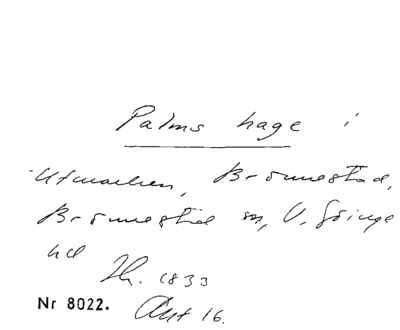 Palms hage i
Utmarken, Brönnestad,
Brönnestad sn, V. Göinge
hd Th. 1833
Nr 8022. Ant 16.